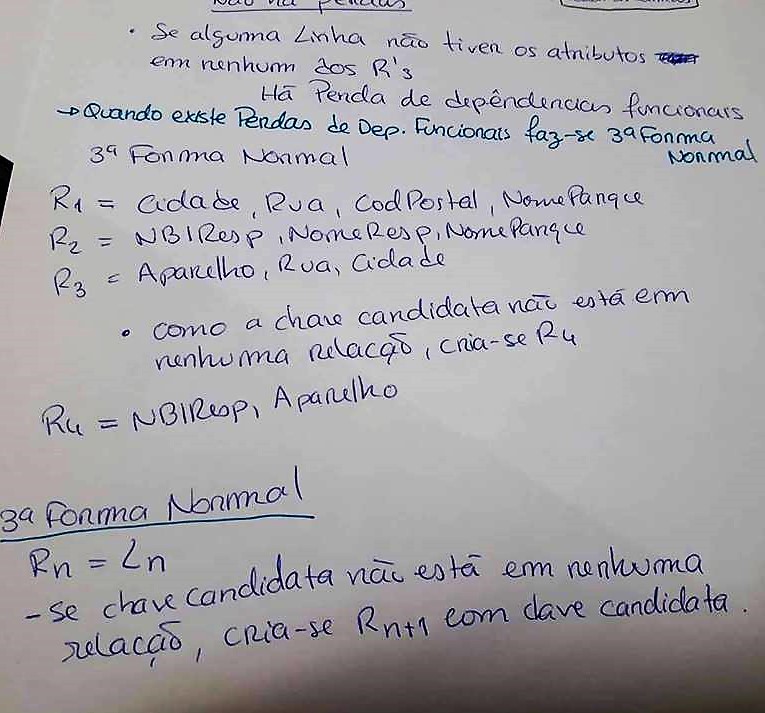 Não há perdas
• Se alguma Linha não tiver os atributos
em nenhum dos R's
Há Perda de depêndencias funcionais
→ Quando existe Perdas de Dep. Funcionais faz-se 3ª Forma
Normal
3ª Forma Normal
R1 = Cidade, Rua, CodPostal, NomeParque
R2 = NBIResp, NomeResp, NomeParque
R3 = Aparelho, Rua, Cidade
• como a chave candidata não está em
nenhuma relação, cria-se R4
R4 = NBIResp, Aparelho
3ª Forma Normal
Rn = Ln
- se chave candidata não está em nenhuma
relação, cria-se Rn+1 com chave candidata.